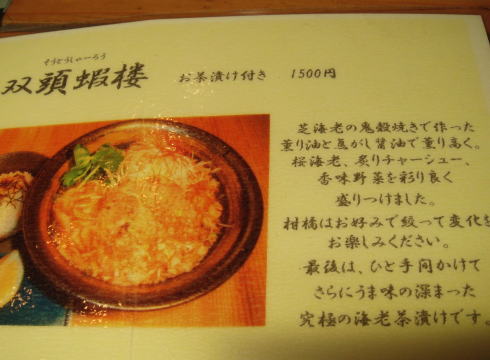 そうとうしゃーろう
双頭蝦楼 お茶漬け付き 1500円
芝海老の鬼殻焼きで作った
薫り油と焦がし醤油で薫り高く。
桜海老、炙りチャーシュー、
香味野菜を彩り良く
盛りつけました。
柑橘はお好みで絞って変化を
お楽しみください。
最後は、ひと手間かけて
さらにうま味の深まった
究極の海老茶漬けです。